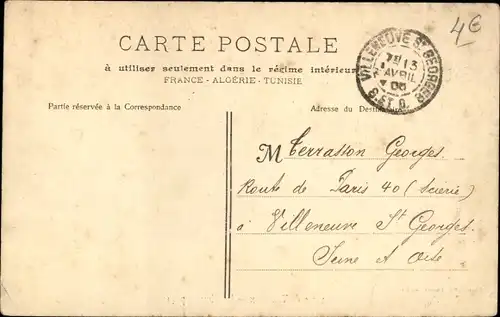 4€
CARTE POSTALE
à utiliser seulement dans le régime intérieur
FRANCE - ALGÉRIE - TUNISIE
VILLENEUVE ST GEORGES
13
AVRIL
S. ET O.
Partie réservée à la Correspondance
Adresse du Destinataire
M Terrasson Georges
Route de Paris 40 (Scierie)
à Villeneuve St Georges
Seine et Oise